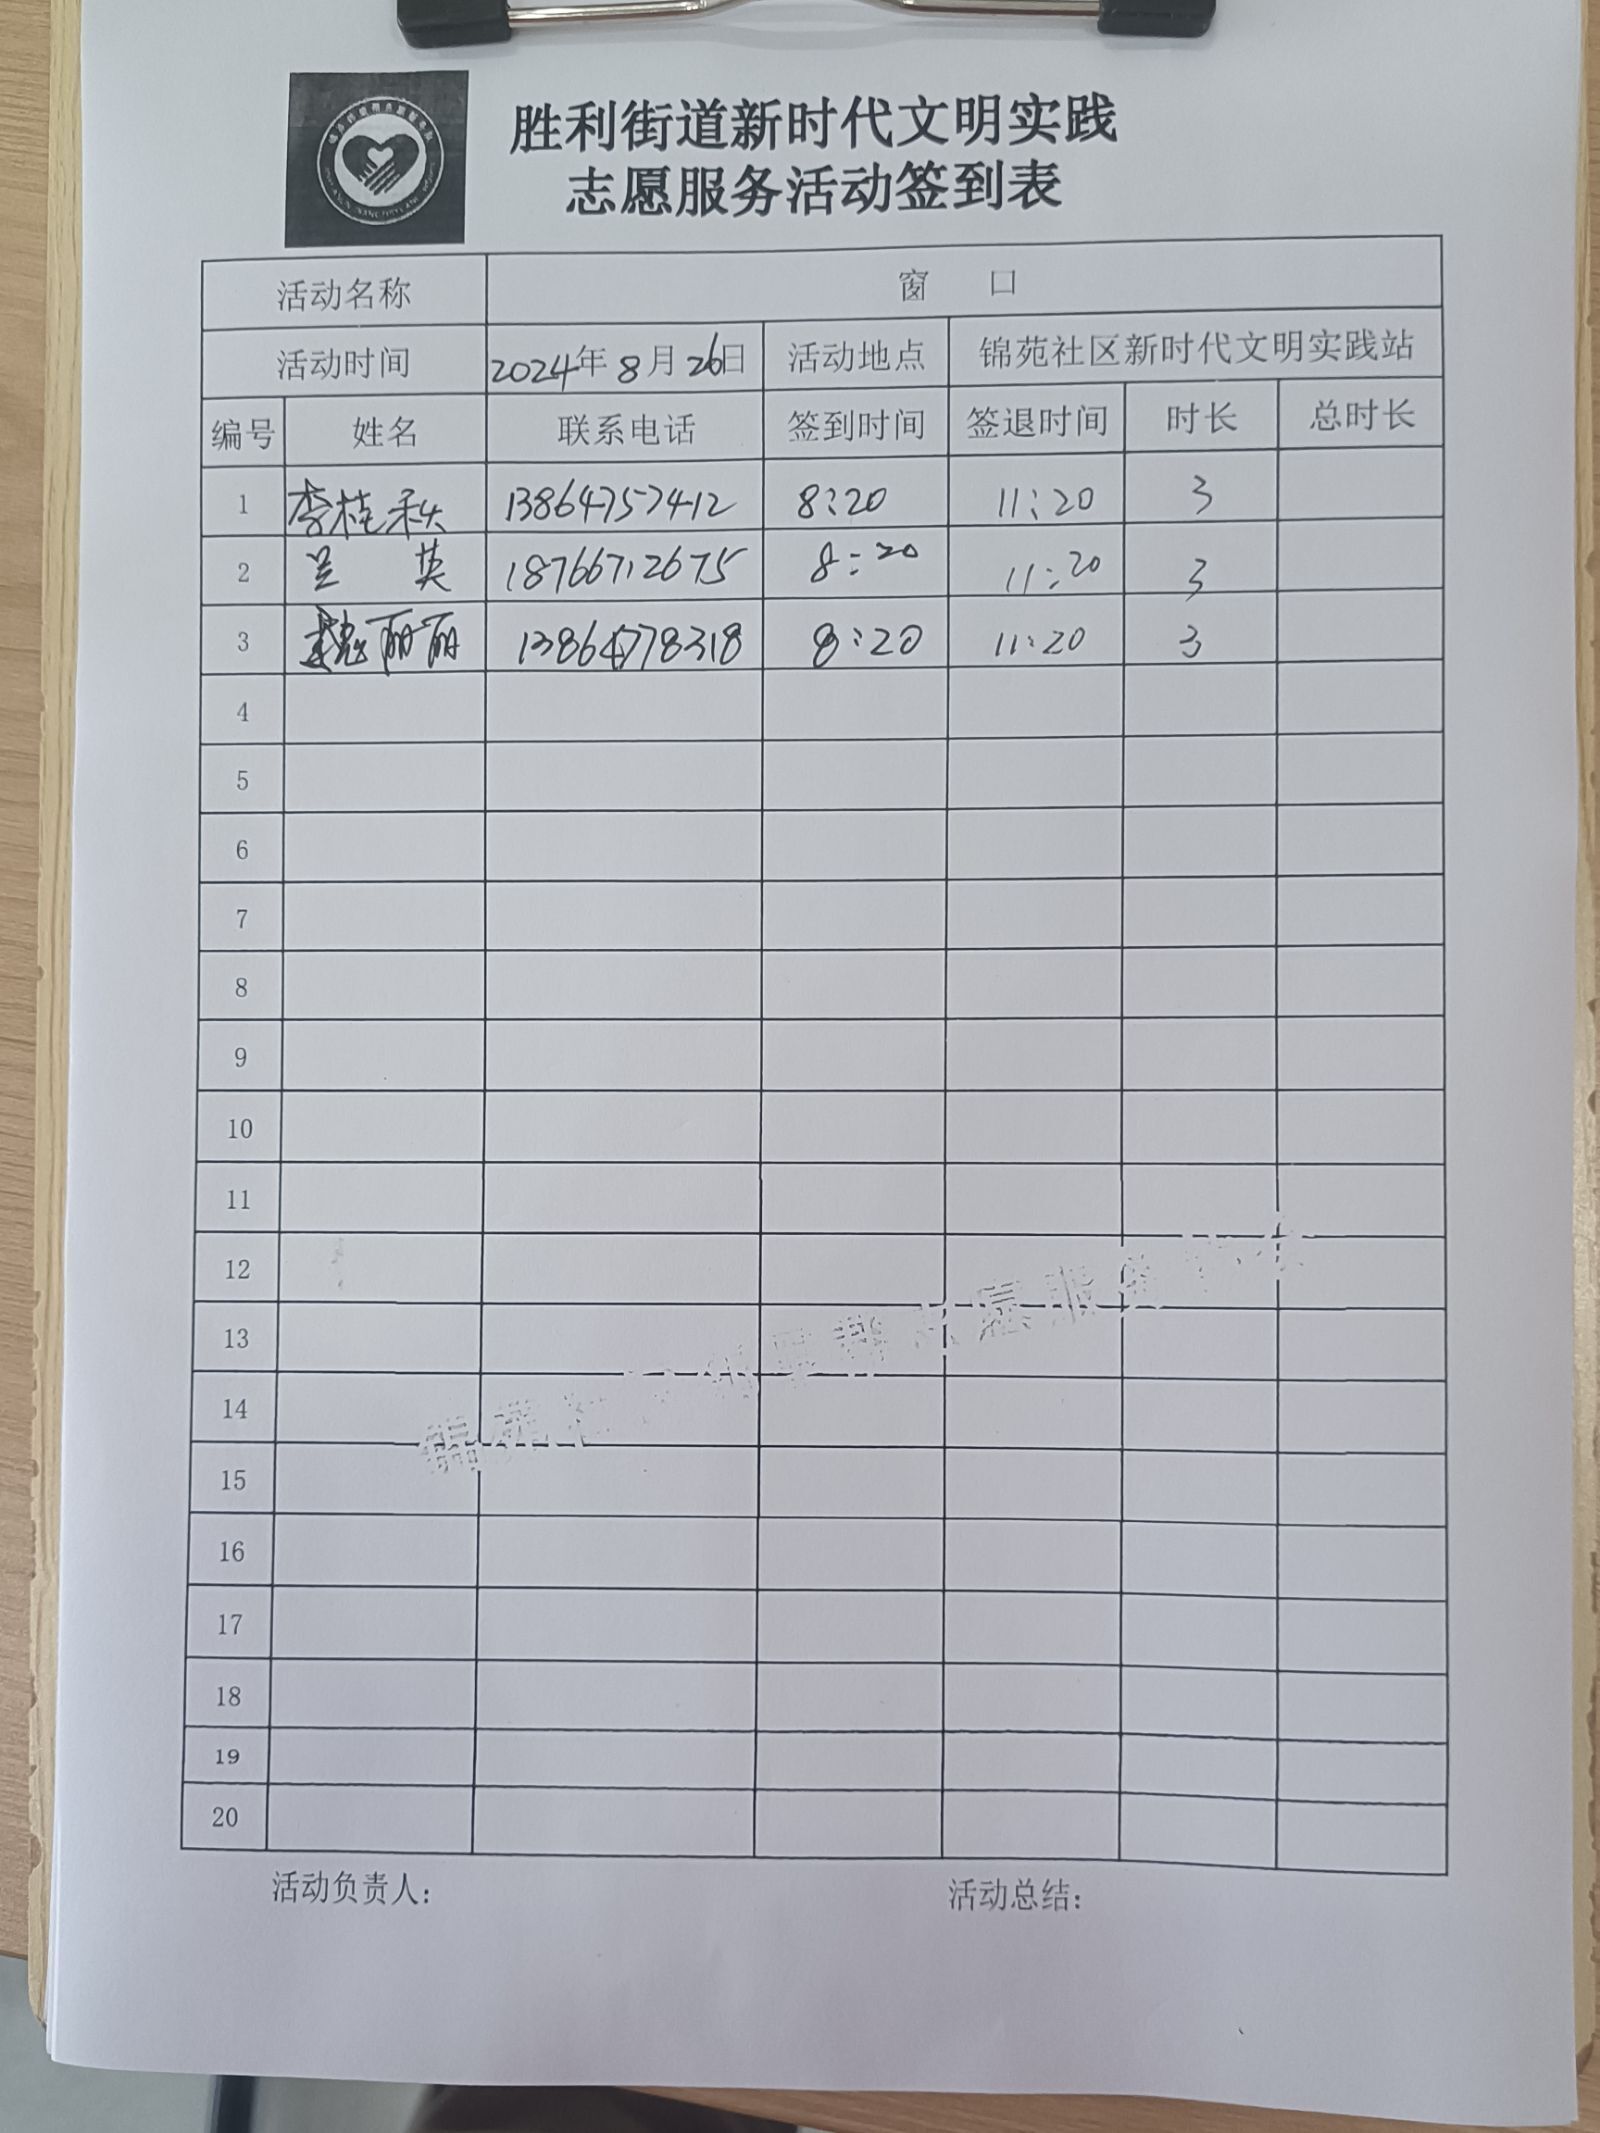 胜利街道新时代文明实践
志愿服务活动签到表
活动名称 窗 口
活动时间 2024年 8月 26日 活动地点 锦苑社区新时代文明实践站
编号 姓名 联系电话 签到时间 签退时间 时长 总时长
1 李桂秋 13864757412 8:20 11:20 3
2 吴 英 18766712675 8:20 11:20 3
3 魏丽丽 13864778318 8:20 11:20 3
4
5
6
7
8
9
10
11
12
13
14
15
16
17
18
19
20
活动负责人: 活动总结: